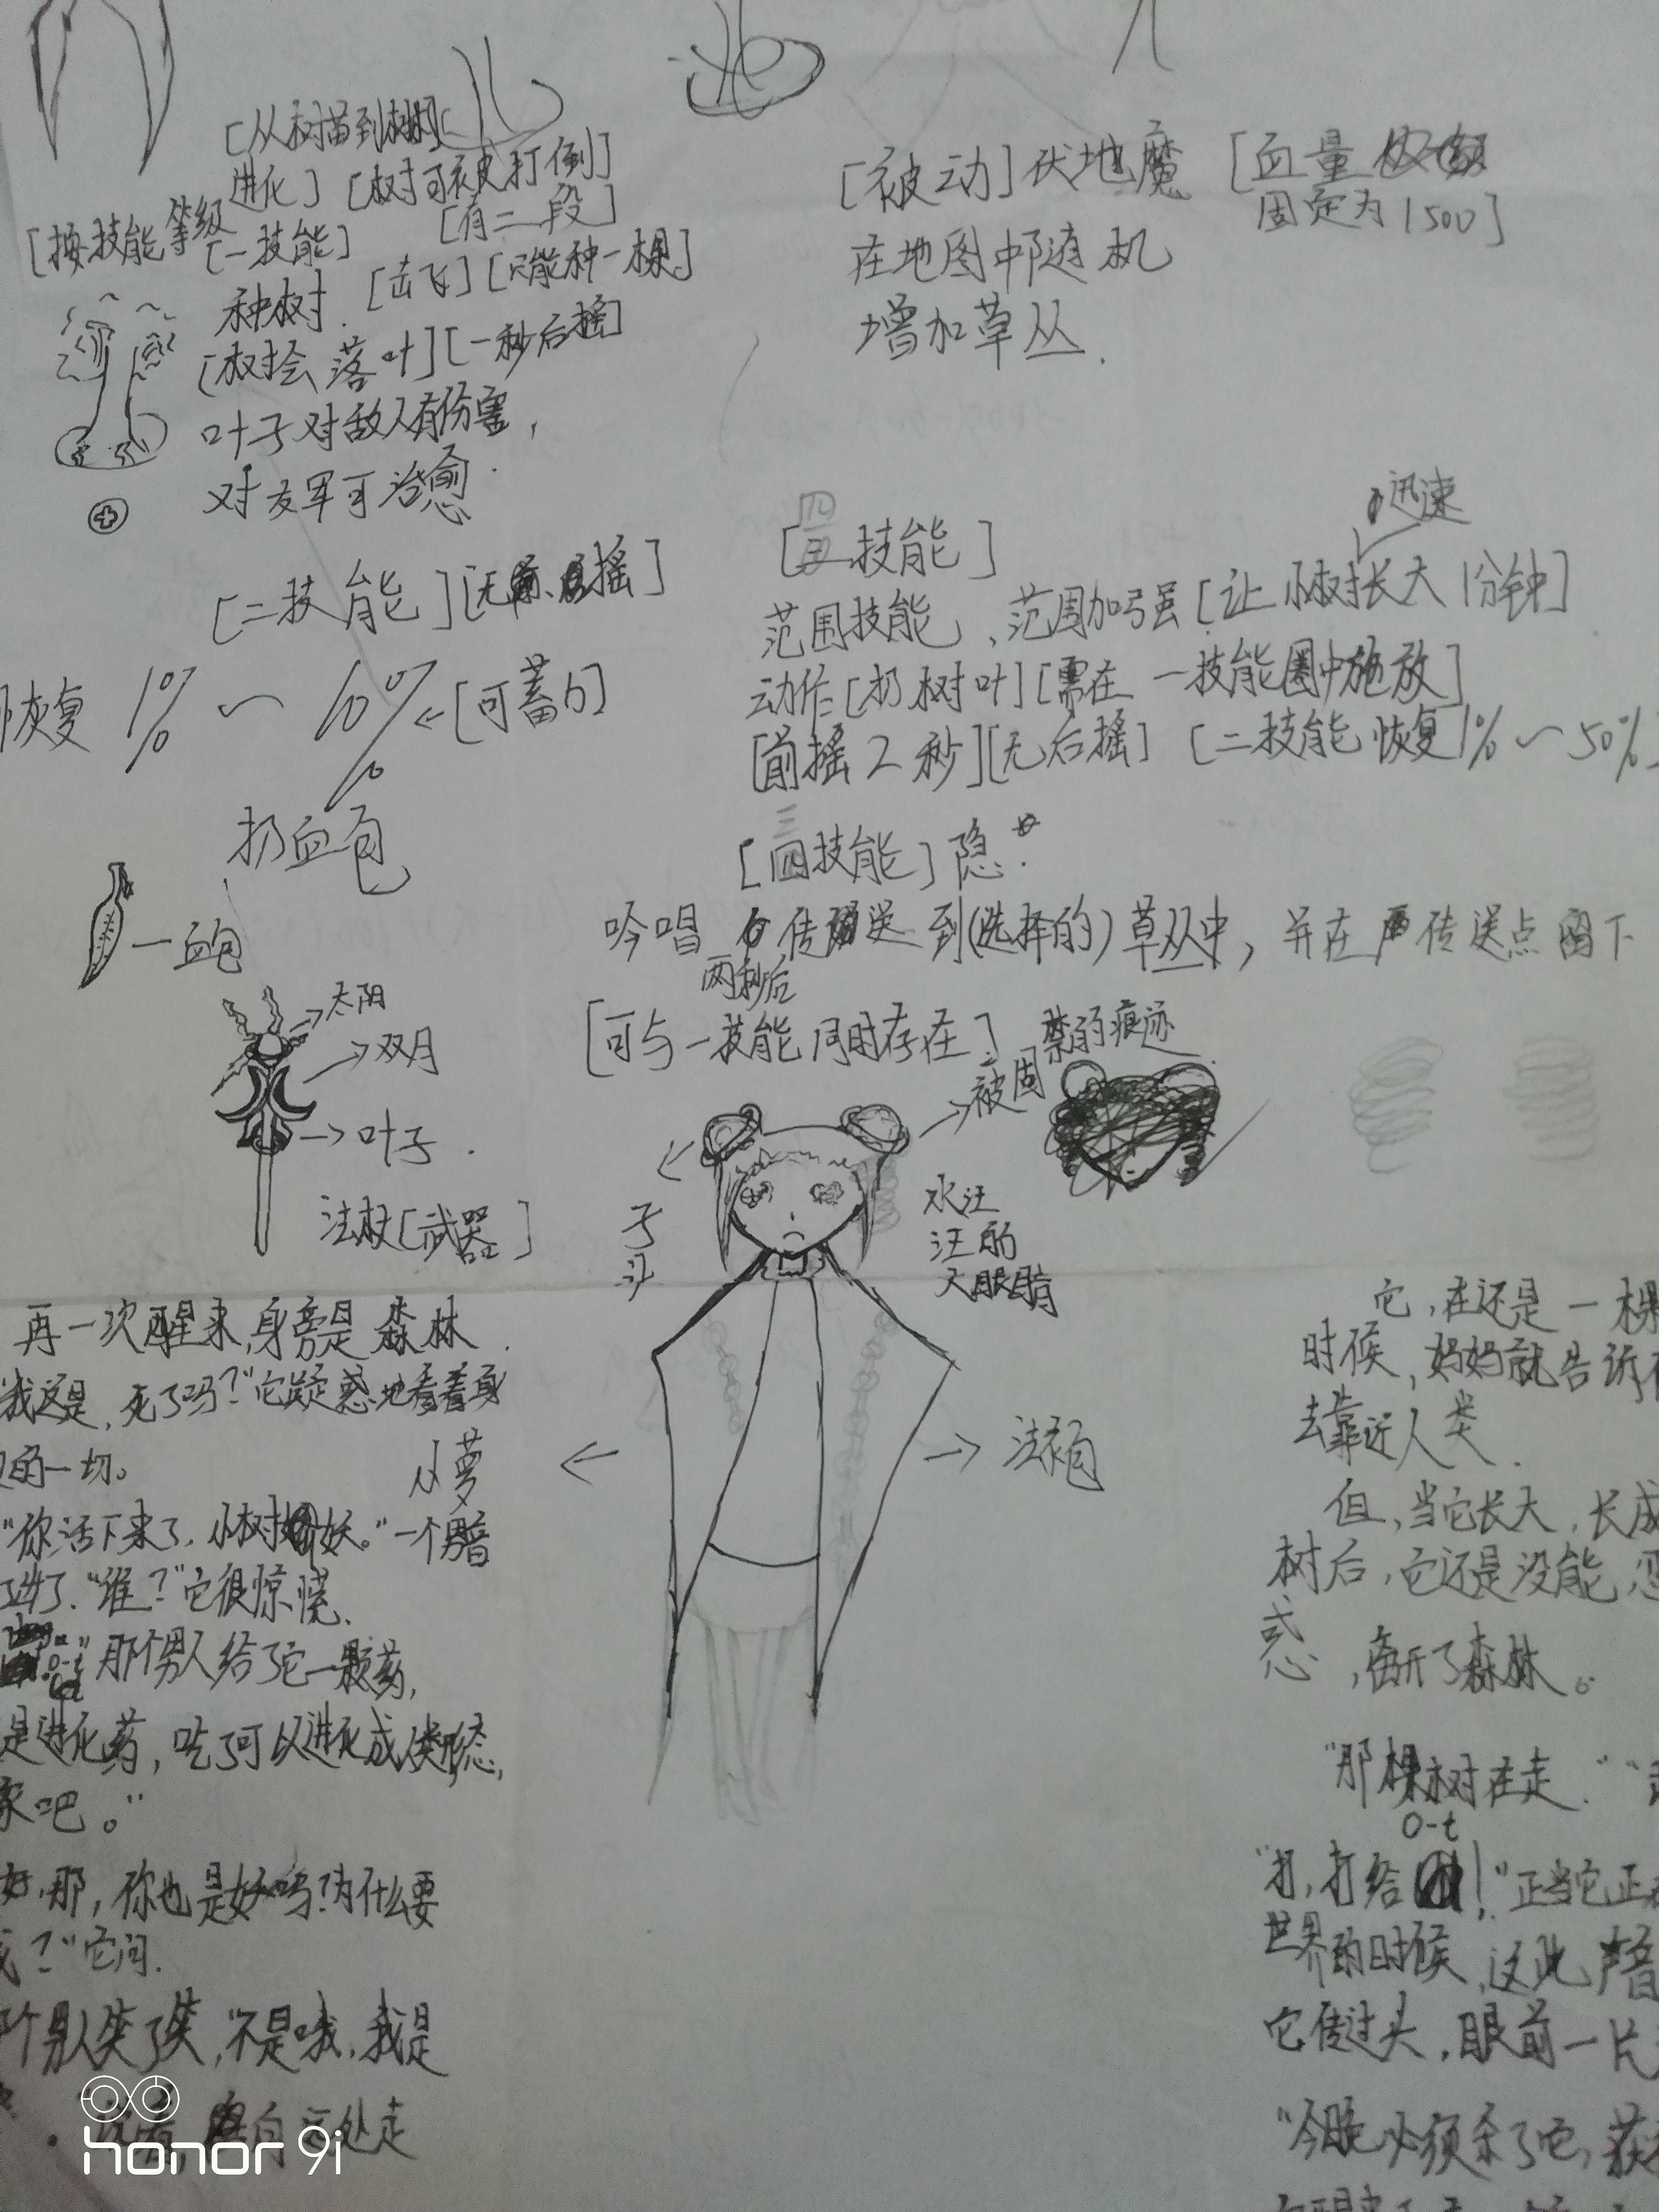 [从树苗到树
进化] [树可被打倒]
[按技能等级 [一技能] [有二段]
种树. [击飞] [只能种一棵]
[树会落叶] [一秒后摇]
叶子对敌人有伤害,
对友军可治愈.
[二技能] [无 摇]
恢复 1% ~ 10% ← [可蓄力]
扔血包
一血包
→太阳
→双月
→叶子.
法杖[武器]
[被动] 伏地魔 [血量
固定为1500]
在地图中随机
增加草丛.
四
[技能]
迅速
范围技能、范围加强 [让小树长大1分钟]
动作[扔树叶] [需在一技能圈中施放]
[前摇2秒] [无后摇] [二技能恢复1% ~ 50%
三
[技能] 隐.
吟唱 传送到(选择的)草丛中, 并在 传送点留下
两秒后
[可与一技能同时存在]
→被固
禁的痕迹
水汪
汪的
大眼睛
→ 法袍
再一次醒来,身旁是森林.
我这是,死了吗?"它疑惑地看着身
的一切。
从萝
"你活下来了,小树妖。"一个男音
"谁?"它很惊慌.
o-t
"那个男人给了它一颗药,
是进化药,吃了可以进化成人类形态,
家吧。"
那,你也是妖吗?为什么要
?"它问.
个男人笑了笑,"不是哦,我是
向远处走
它,在还是一棵
时候,妈妈就告诉
去靠近人类.
但,当它长大,长成
树后,它还是没能,
惑,离开了森林。
"那棵树在走." "
o-t
"打,打给 !"正当它正
世界的时候,这些声音
它转过头,眼前一片
"今晚必须杀了它,获
honor 9i